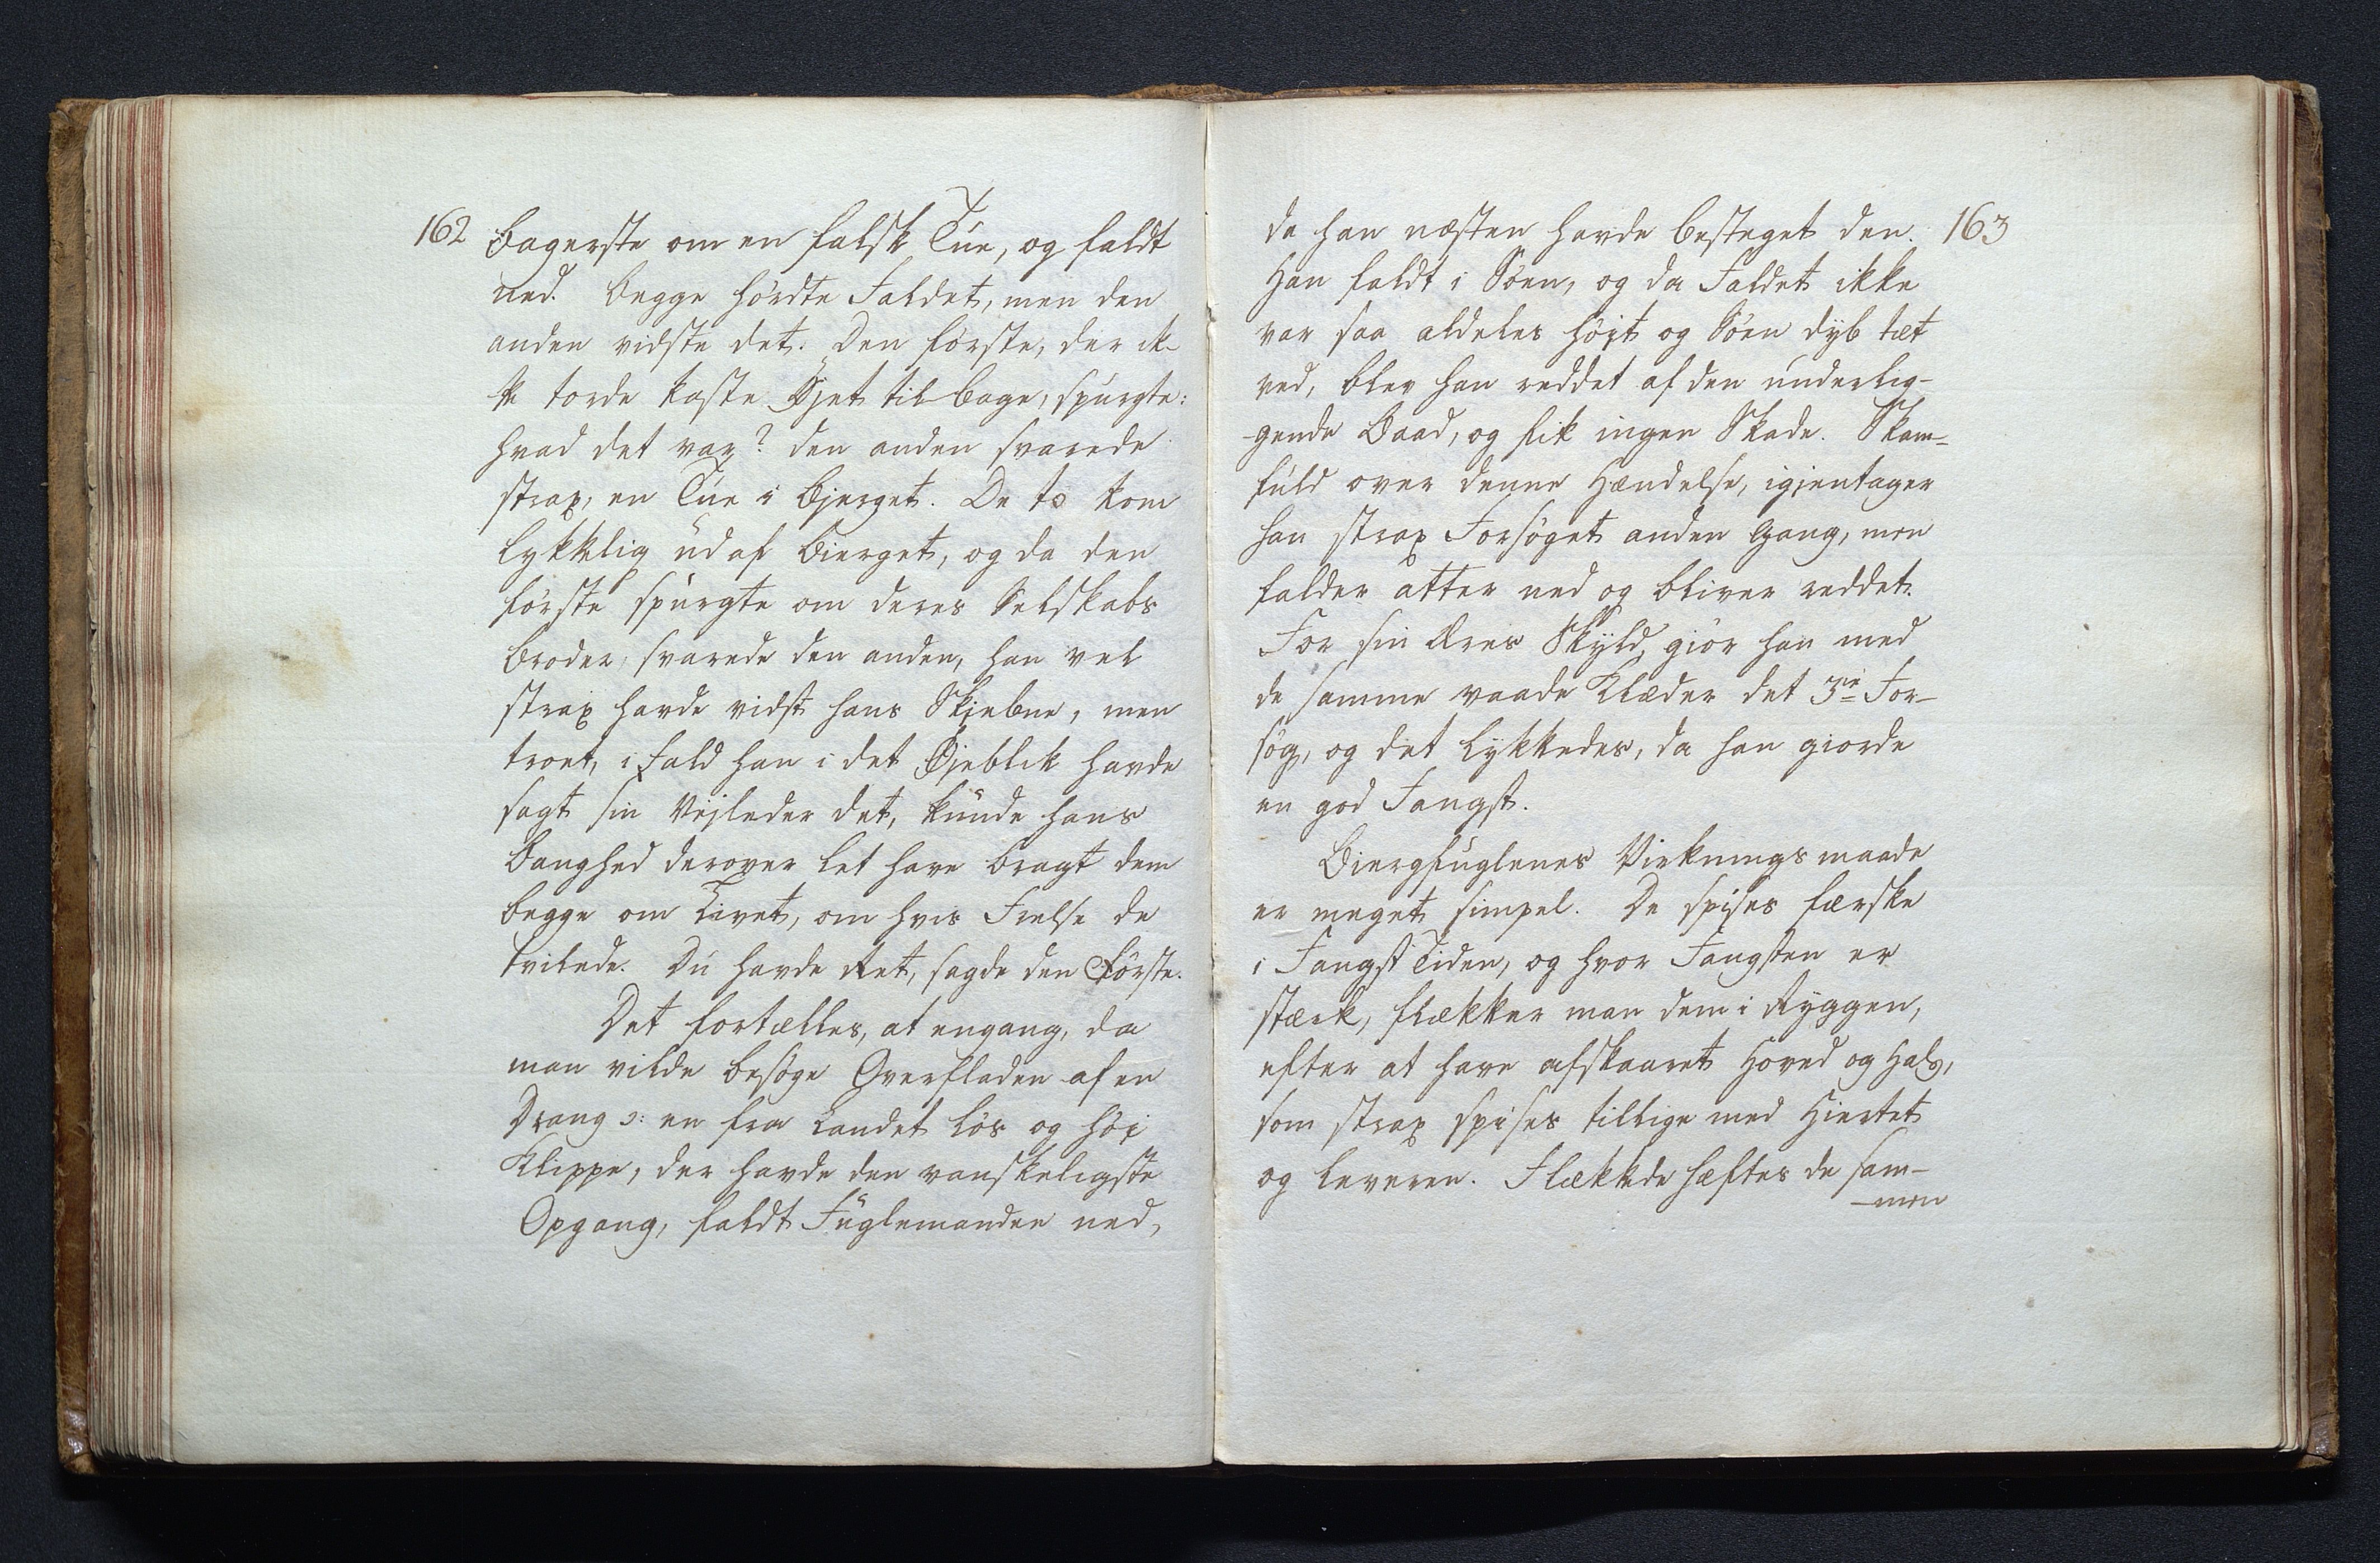 162
bagerste om en falsk Tue, og faldt
ned. Begge hørdte Faldet, men den
anden vidste det. Den første, der ik-
ke torde kaste Øjet tilbage, spurgte:
hvad det var? den anden svarede
strax, en Tue i Bjerget. De to kom
lykklig ud af Bierget, og da den
første spurgte om deres Selskabs
Broder, svarede den anden, han vel
strax havde vidst hans Skjebne, men
troet, i fald han i det Øjeblik havde
sagt sin Vejleder det, kunde hans
Banghed derover let have bragt dem
begge om Livet, om hvis Frelse de
tvilede. Du havde Ret, sagde den Første.
Det fortælles, at engang, da
man vilde besøge Overfladen af en
Drang ɔ: en fra Landet løs og høj
Klippe, der havde den vanskeligste
Opgang, faldt Fuglemanden ned,
163
da han næsten havde besteget den.
Han faldt i Søen, og da Faldet ikke
var saa aldeles højt og Søen dyb tæt
ved, blev han reddet af den underlig-
gende Baad, og fik ingen Skade. Skam-
fuld over denne Hændelse, igjentager
han strax Forsøget anden Gang, men
falder atter ned og bliver reddet.
For sin Æres Skyld, giør han med
de samme vaade Klæder det 3die For-
søg, og det lykkedes, da han giorde
en god Fangst.
Biergfuglenes Virknings maade
er meget simpel. De spises færske
i Fangst Tiden, og hvor Fangsten er
stærk, flækker man dem i Ryggen,
efter at have afskaaret Hoved og Hals,
som strax spises tillige med Hiertet
og Leveren. Flækkede hæftes de sam-
-men